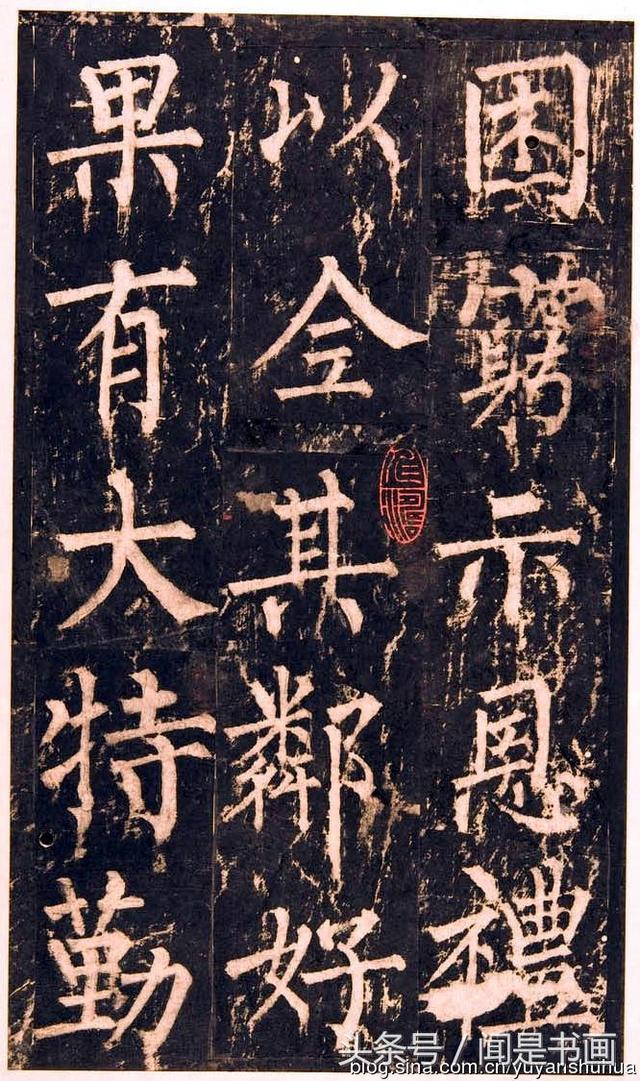 困窮示恩禮
以全其鄰好
果有大特勤
头条号 / 闻是书画
blog.sina.com.cn/yuyanshuhua